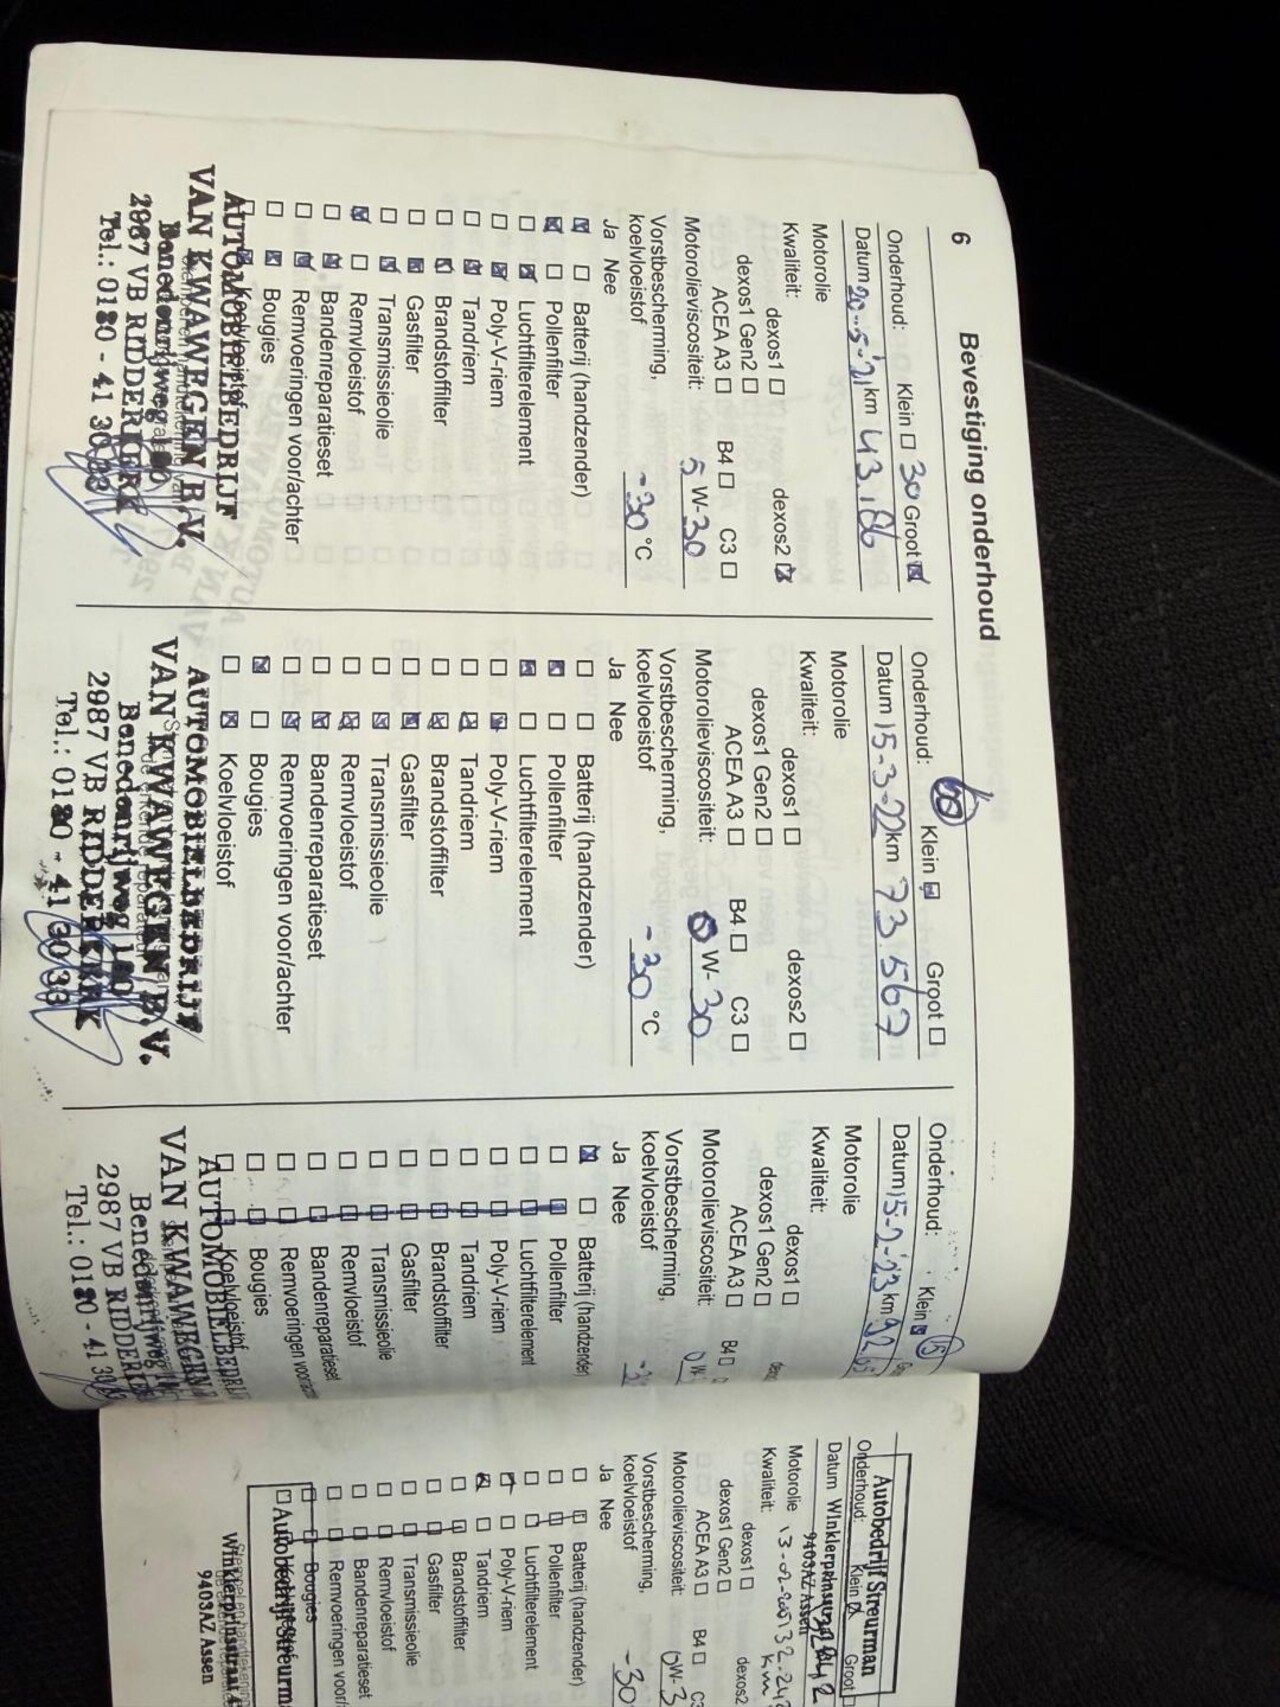 6 Bevestiging onderhoud
Onderhoud: Klein ☐ 30 Groot ☒
Datum 20-5-'21 km 43.186
Motorolie
Kwaliteit: dexos1 ☐ dexos2 ☒
dexos1 Gen2 ☐
ACEA A3 ☐ B4 ☐ C3 ☐
Motorolieviscositeit: 5 W-30
Vorstbescherming,
koelvloeistof -30 °C
Ja Nee
☒ ☐ Batterij (handzender)
☒ ☐ Pollenfilter
☐ ☒ Luchtfilterelement
☐ ☒ Poly-V-riem
☐ ☒ Tandriem
☐ ☒ Brandstoffilter
☐ ☒ Gasfilter
☐ ☒ Transmissieolie
☒ ☐ Remvloeistof
☐ ☒ Bandenreparatieset
☐ ☒ Remvoeringen voor/achter
☐ ☒ Bougies
☐ ☒ Koelvloeistof
AUTOMOBIELBEDRIJF
VAN KWAWEGEN B.V.
Benedenrijweg
2987 VB RIDDERKERK
Tel.: 0180 - 41 30 33
Onderhoud: 60 Klein ☒ Groot ☐
Datum 15-3-22 km 73.567
Motorolie
Kwaliteit: dexos1 ☐ dexos2 ☐
dexos1 Gen2 ☐
ACEA A3 ☐ B4 ☐ C3 ☐
Motorolieviscositeit: 0 W-30
Vorstbescherming,
koelvloeistof -30 °C
Ja Nee
☐ ☐ Batterij (handzender)
☒ ☐ Pollenfilter
☒ ☐ Luchtfilterelement
☐ ☒ Poly-V-riem
☐ ☒ Tandriem
☐ ☒ Brandstoffilter
☐ ☒ Gasfilter
☐ ☒ Transmissieolie
☐ ☒ Remvloeistof
☐ ☒ Bandenreparatieset
☐ ☒ Remvoeringen voor/achter
☒ ☐ Bougies
☐ ☒ Koelvloeistof
AUTOMOBIELBEDRIJF
VAN KWAWEGEN B.V.
Benedenrijweg
2987 VB RIDDERKERK
Tel.: 0180 - 41 30 33
Onderhoud: Klein ☒ 15
Datum 15-2-'23 km 92
Motorolie
Kwaliteit: dexos1 ☐
dexos1 Gen2 ☐
ACEA A3 ☐ B4 ☐
Motorolieviscositeit: 0 W
Vorstbescherming,
koelvloeistof
Ja Nee
☒ ☐ Batterij (handzender)
☐ ☐ Pollenfilter
☐ ☐ Luchtfilterelement
☐ ☐ Poly-V-riem
☐ ☐ Tandriem
☐ ☐ Brandstoffilter
☐ ☐ Gasfilter
☐ ☐ Transmissieolie
☐ ☐ Remvloeistof
☐ ☐ Bandenreparatieset
☐ ☐ Remvoeringen
☐ ☐ Bougies
☐ ☐ Koelvloeistof
AUTOMOBIELBEDRIJ
VAN KWAWEGEN
Benedenrijweg
2987 VB RIDDERK
Tel.: 0180 - 41 30
Autobedrijf Streurman
Onderhoud: Klein ☒ Groot
Datum Winklerprinsstraat
9403AZ Assen
Motorolie
Kwaliteit: dexos1 ☐ dexos2
km
dexos1 Gen2 ☐
ACEA A3 ☐ B4 ☐ C3
Motorolieviscositeit: 0W-3
Vorstbescherming,
koelvloeistof -30
Ja Nee
☐ ☐ Batterij (handzender)
☐ ☐ Pollenfilter
☐ ☐ Luchtfilterelement
☒ ☐ Poly-V-riem
☒ ☐ Tandriem
☐ ☐ Brandstoffilter
☐ ☐ Gasfilter
☐ ☐ Transmissieolie
☐ ☐ Remvloeistof
☐ ☐ Bandenreparatieset
☐ ☐ Remvoeringen voor/
☐ ☐ Bougies
Autobedrijf Streurm
Winklerprinsstraat
9403AZ Assen